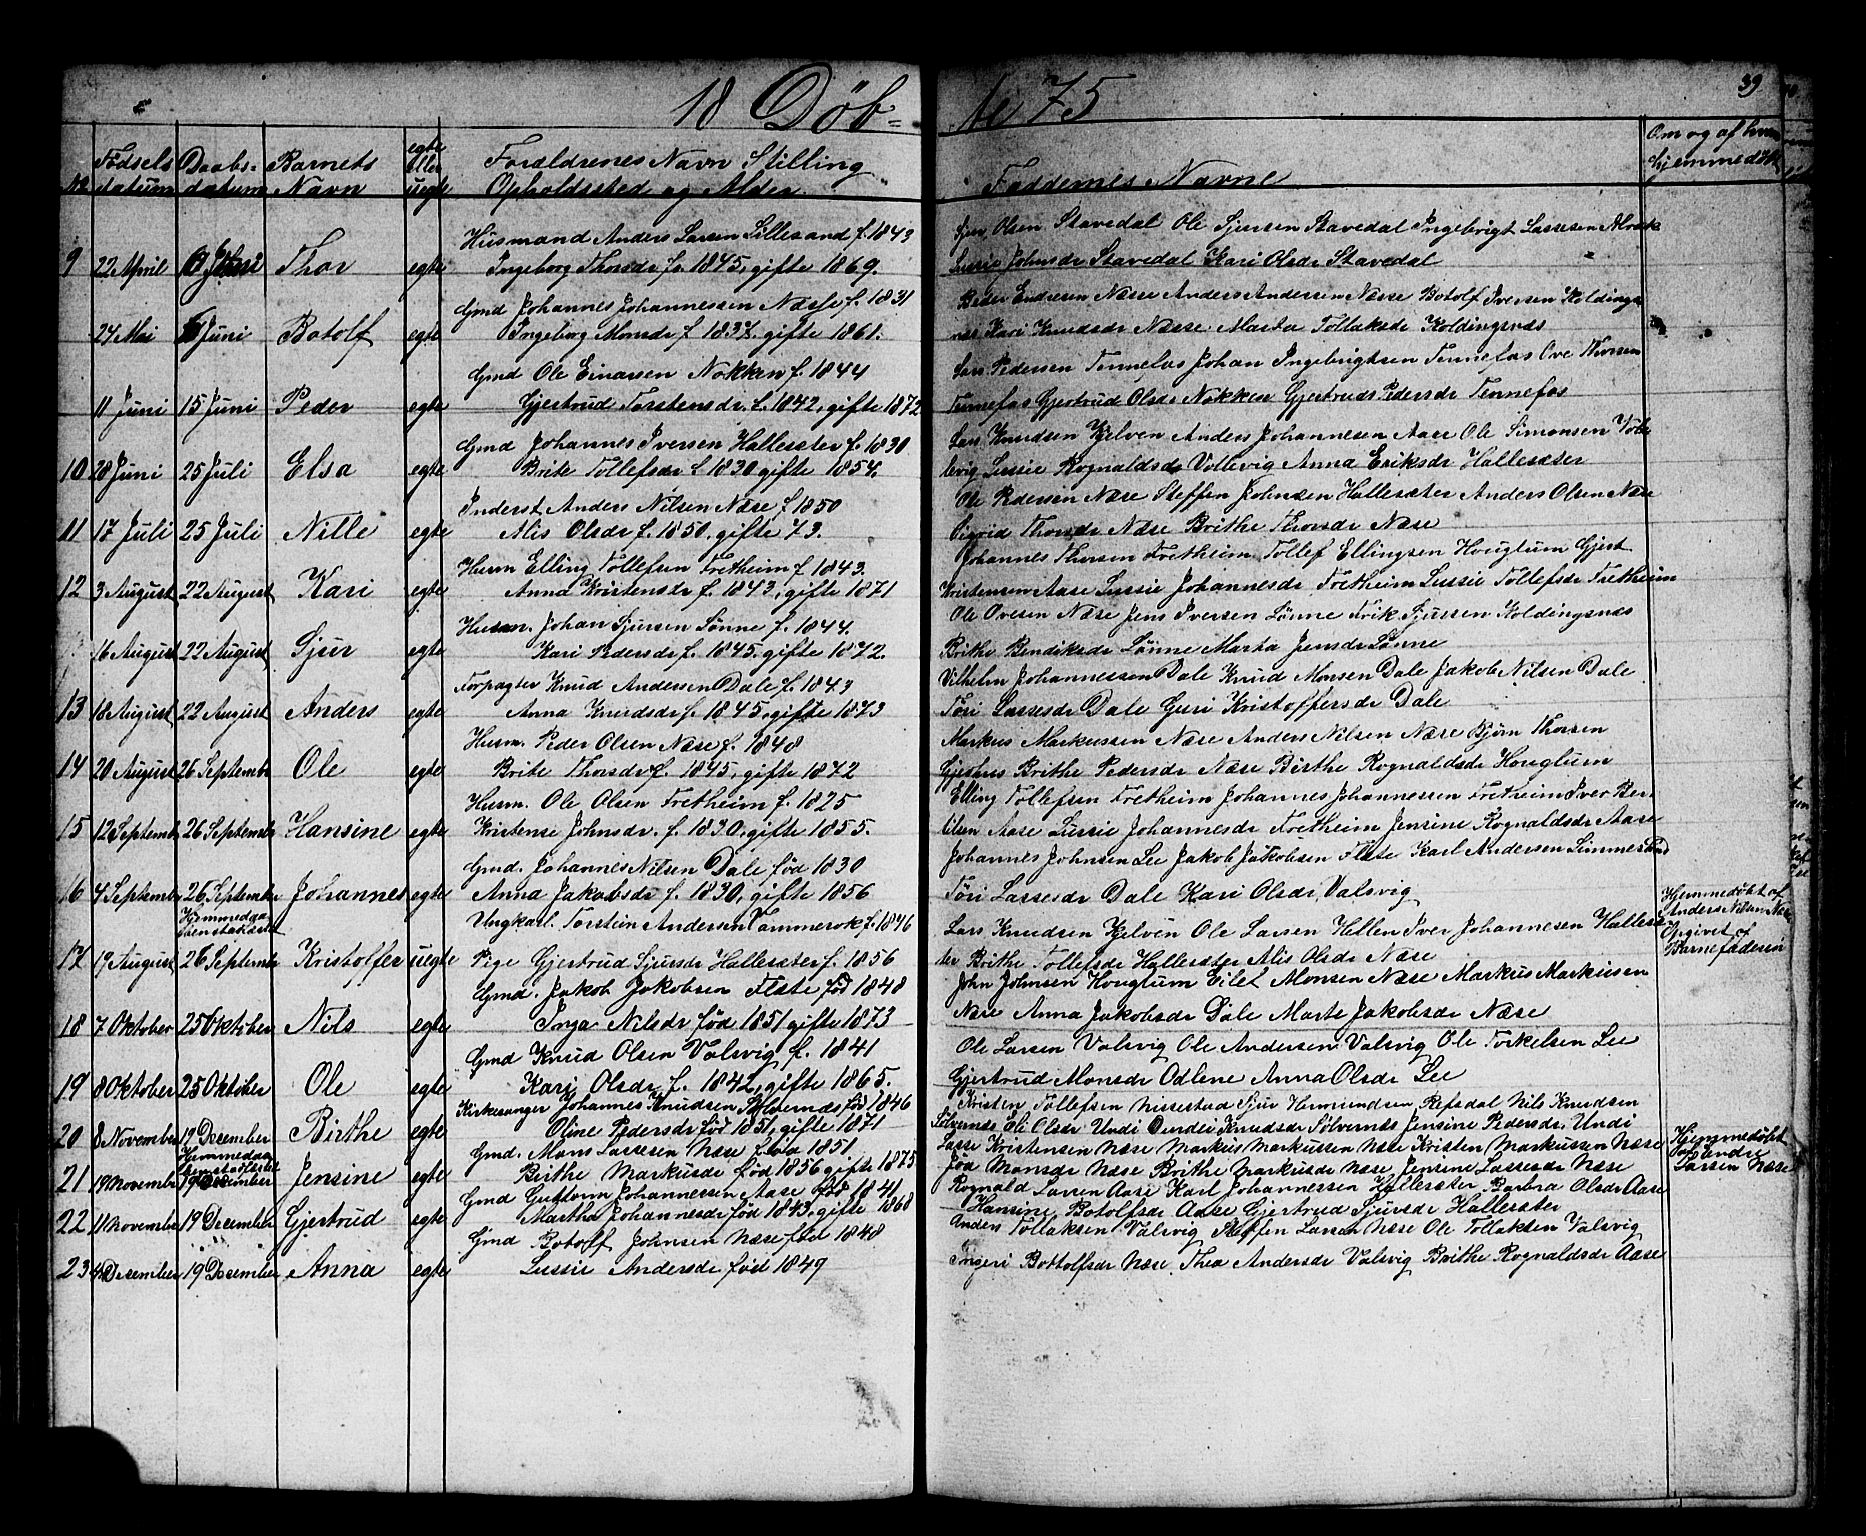 18 Døb=
te 75
39
No
Fødsels datum
Daabs= datum
Barnets Navn
egte eller uegte
Forældrenes Navn Stilling
Opholdssted og Alder
Faddernes Navne
Om og af hvem hjemmedøbt
Husmand Anders Larsen Lillesand f. 1843
9 22 April Juni Thor egte Ingeborg Thorsdr f. 1845, gifte 1869.
Gmd Johannes Johannessen Næse f. 1831
24 Mai Juni Botolf egte Ingeborg Monsdr f. 1837. gifte 1861.
Gmd Ole Einarsen Nokken f. 1844
11 Juni 15 Juni Peder egte Gjertrud Torstensdr. f. 1842, gifte 1872
Gmd Johannes Iversen Hallesæter f. 1830
10 28 Juni 25 Juli Elsa egte Brite Tollefsdr f. 1830 gifte 1854.
Inderst Anders Nilsen Næse f 1850
11 17 Juli 25 Juli Nille egte Alis Olsdr f. 1850. gifte 73.
Husm Elling Tollefsen Fretheim f 1843.
12 3 August 22 August Kari egte Anna Kristensdr f. 1843, gifte 1871
Husm. Johan Sjursen Lønne f. 1844.
16 August 22 August Sjur egte Kari Pedersdr f. 1845. gifte 1872.
Forpagter Knud Andersen Dale f. 1843
13 18 August 22 August Anders egte Anna Knudsdr f. 1845, gifte 1873
Husm. Peder Olsen Næse f. 1848
14 20 August 26 Septembr Ole egte Brite Thorsdr f. 1845, gifte 1872
Husm. Ole Olsen Fretheim f. 1825
15 12 Septembr 26 Septembr Hansine egte Kristense Johnsdr. f. 1830, gifte 1855.
Gmd. Johannes Nilsen Dale fød 1830
16 4 Septembr 26 Septembr Johannes egte Anna Jakobsdr f. 1830, gifte 1856
Hjemmedaab Stenstadfæstet
Ungkarl. Torstein Andersen Tammerok f. 1846
17 19 August 26 Septembr Kristoffer uegte Pige Gjertrud Sjursdr Hallesæter f. 1856
Gmd. Jakob Jakobsen Flæte fød 1848
18 7 Oktober 25 Oktober Nils egte Inga Nilsdr fød 1851 gifte 1873
Gmd Knud Olsen Valsvig f. 1841
19 8 Oktober 25 Oktober Ole egte Kari Olsdr f. 1842, gifte 1865.
Kirkesanger Johannes Knudsen Sølvernæs fød 1846
20 8 November 19 Desember Birthe egte Oline Pedersdr fød 1851, gifte 1871
Hjemmedaab
Gmd. Mons Lassesen Næse fød 1851.
21 19 November 19 Desember Jensine egte Birthe Markusdr fød 1856 gifte 1875
Gmd Guttorm Johannessen Aase fød 1841
22 11 November 19 Desember Gjertrud egte Martha Johannesdr fød 1843, gifte 1868
Gmd Botolf Johnsen Næse fød 1848
23 Desember 19 Desember Anna egte Lussie Andersdr fød 1849
Sjur Olsen Stavedal Ole Sjursen Stavedal Ingebrigt Lassesen
Lussie Johnsdr Stavedal Kari Olsdr Stavedal
Peder Endresen Næse Anders Andersen Næse Botolf Iversen Koldings
næs Kari Knudsdr Næse. Marta Tollaksdr Koldingsnæs
Lars Pedersen Tennefos Johan Ingebrigtsen Tennefos Ove Thorsen
Tennefos Gjertrud Olsdr Nokken Gjertrud Pedersdr Tennefos
Lars Knudsen Kjelven Anders Johannesen Aase Ole Simonsen Volle
levig Lussie Rognaldsdr Vollevig Anna Eriksdr Hallesæter
Ole Pedersen Næse Steffen Johnsen Hallesæter Anders Olsen Næse
Sigrid Thorsdr Næse Brithe Thorsdr Næse
Johannes Thorsen Fretheim Tollef Ellingsen Houglum Gjert
Kristensen Aase Lussie Johannesdr Fretheim Lussie Tollefsdr Fretheim
Ole Ovesen Næse Jens Iversen Lønne Erik Sjursen Koldingsnæs
Brithe Bendiksdr Lønne Marta Jensdr Lønne
Vilhelm Johannessen Dale Knud Monsen Dale Jakob Nilsen Dale
Tori Lassesdr Dale Guri Kristoffersdr Dale
Markus Markussen Næse Anders Nilsen Næse Bjørn Thorsen
Brithe Pedersdr Næse Birthe Rognaldsdr Houglum
Elling Tollefsen Fretheim Johannes Johannessen Fretheim Iver Ber-
telsen Aase Lussie Johannesdr Fretheim Jensine Rognaldsdr Aase
Johannes Johnsen Lee Jakob Jakobsen Flæte Karl Andersen Limmesand
Tori Lassesdr Dale Kari Olsdr Valsvig
Lars Knudsen Kjelven Ole Larsen Hellen Iver Johannesen Hallesæ
ter Brithe Tollefsdr Hallesæter Alis Olsdr Næse
Hjemmedøbt af Anders Nilsen Næse Opgivet af Barnefaderen
John Johnsen Houglum Eilet Monsen Næse Markus Markusen
Næse Anna Jakobsdr Dale Marte Jakobsdr Næse
Ole Larsen Valsvig Ole Andersen Valsvig Ole Torkelsen Lee
Gjertrud Monsdr Odlene Anna Olsdr Lee
Kristen Tollefsen Nissestad Sjur Hermundsen Refsdal Nils Knudsen
Sølvernæs Eli Olsdr Undi Knudsdr Sølvernæs Jensine Pedersdr. Undi
Lasse Kristensen Næse Markus Markussen Næse Kristen Markussen Næse
Monsdr Næse Brithe Markusdr Næse Jensine Lassesdr Næse
Hjemmedøbt af Endre Larsen Næse
Rognald Larsen Aase Karl Johannessen Hallesæter Barbra Olsdr Aase
Hansine Botolfsdr Aase Gjertrud Sjursdr Hallesæter
Anders Tollaksen Valsvig Steffen Larsen Næse Ole Tollaksen Valsvig
Ingeri Bottolfsdr Næse Thea Andersdr Valsvig Brithe Rognaldsdr Aase